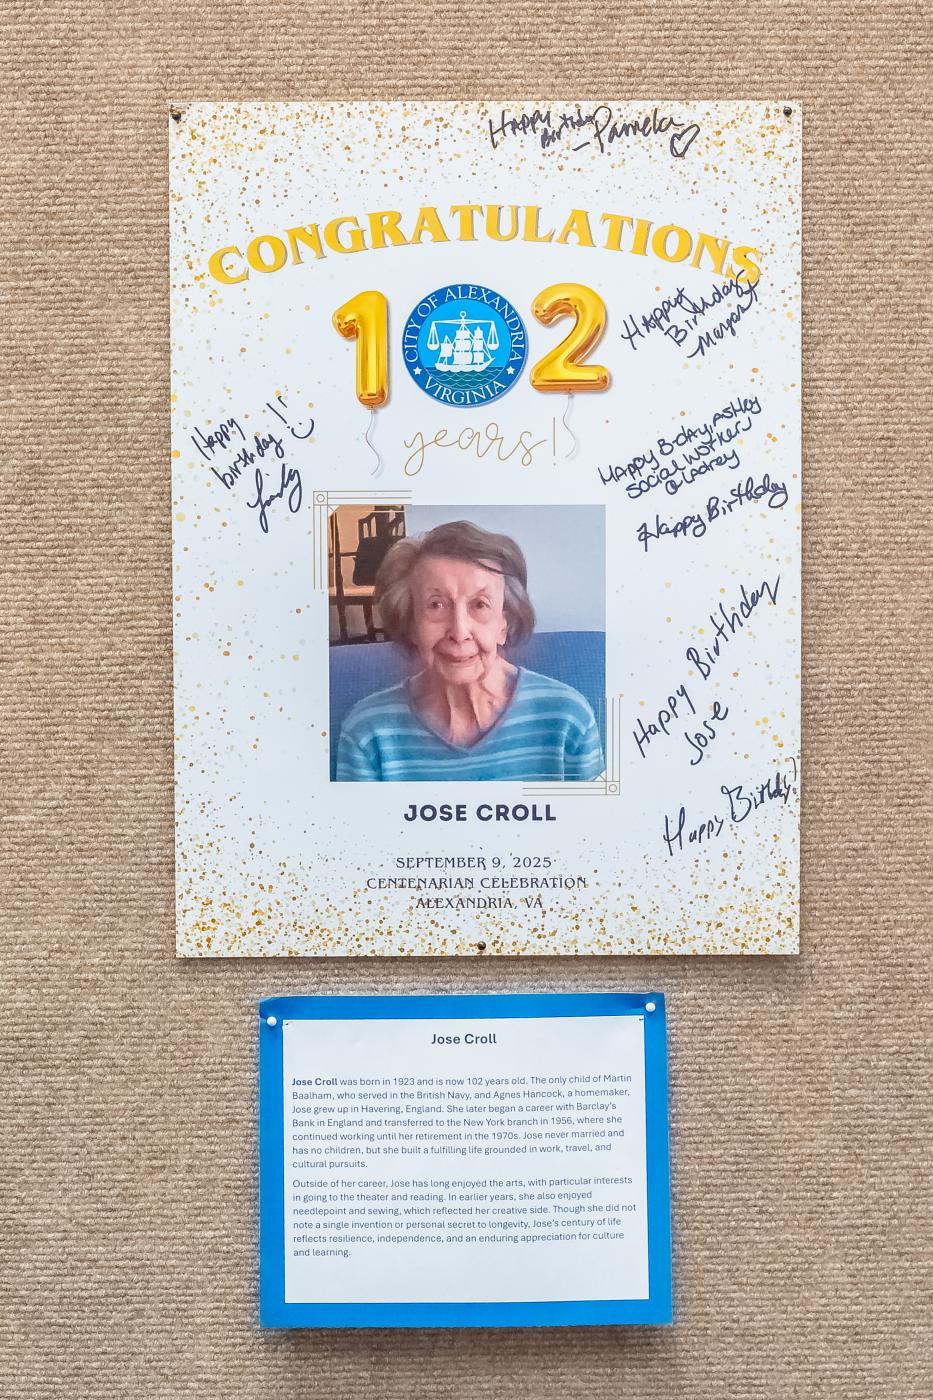 Happy
Birthday
- Pamela
CONGRATULATIONS
102
CITY OF ALEXANDRIA
VIRGINIA
years!
Happy
Birthday
Happy
birthday!!
HAPPY B-DAY, ASHLEY
SOCIAL WORKER
@ Ladrey
Happy Birthday
Happy Birthday
Jose
Happy Birthday!
JOSE CROLL
SEPTEMBER 9, 2025
CENTENARIAN CELEBRATION
ALEXANDRIA, VA
Jose Croll
Jose Croll was born in 1923 and is now 102 years old. The only child of Martin
Baalham, who served in the British Navy, and Agnes Hancock, a homemaker,
Jose grew up in Havering, England. She later began a career with Barclay's
Bank in England and transferred to the New York branch in 1956, where she
continued working until her retirement in the 1970s. Jose never married and
has no children, but she built a fulfilling life grounded in work, travel, and
cultural pursuits.
Outside of her career, Jose has long enjoyed the arts, with particular interests
in going to the theater and reading. In earlier years, she also enjoyed
needlepoint and sewing, which reflected her creative side. Though she did not
note a single invention or personal secret to longevity, Jose's century of life
reflects resilience, independence, and an enduring appreciation for culture
and learning.